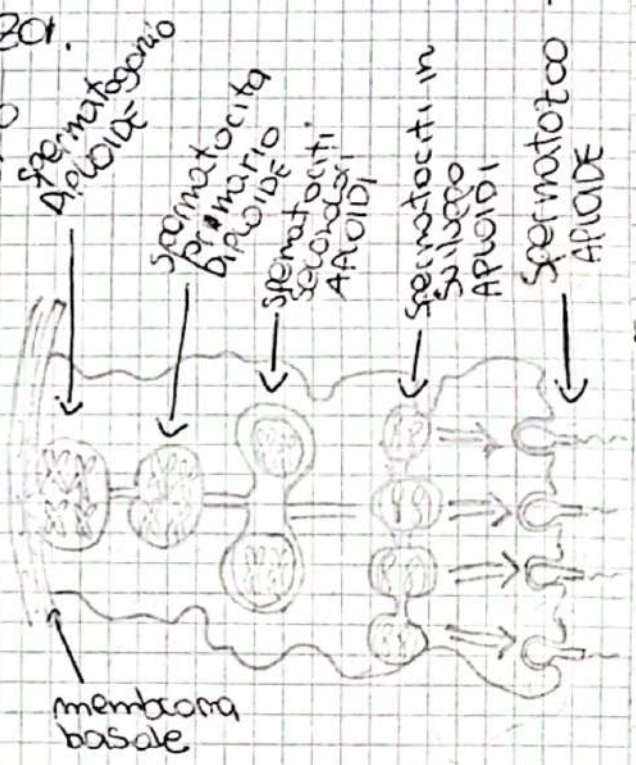 Spermatogonio
DIPLOIDE
Spermatocita
primario
DIPLOIDE
spermatociti
secondari
APLOIDI
Spermatociti in
sviluppo
APLOIDI
Spermatozoo
APLOIDE
membrana
basale